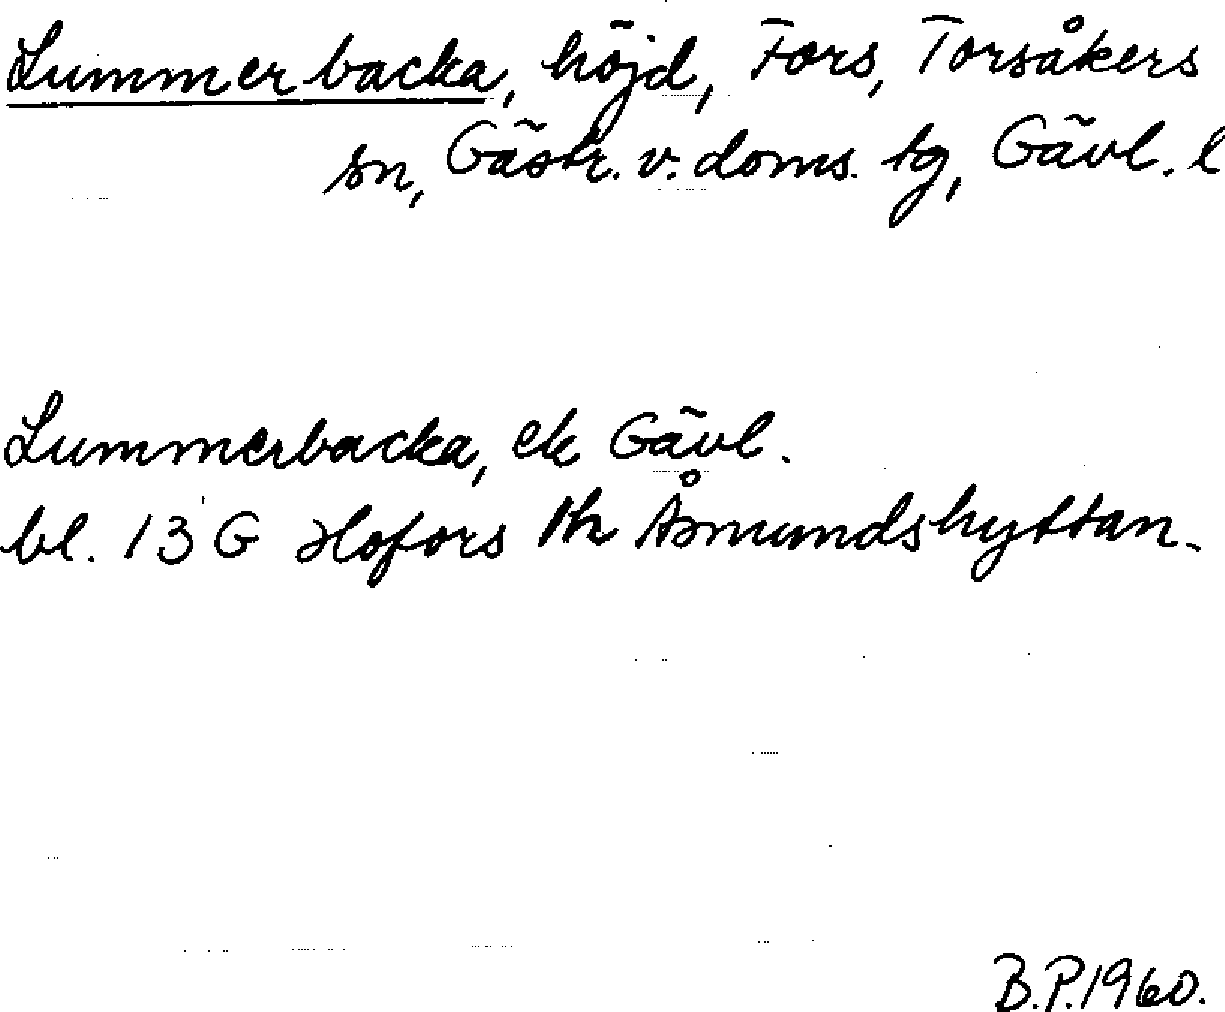 Lummerbacka, höjd, Fors, Torsåkers
sn, Gästr. v. doms. tg, Gävl. l
Lummerbacka, ek Gävl.
bl. 13 G Hofors Åsmundshyttan.
B.P.1960.